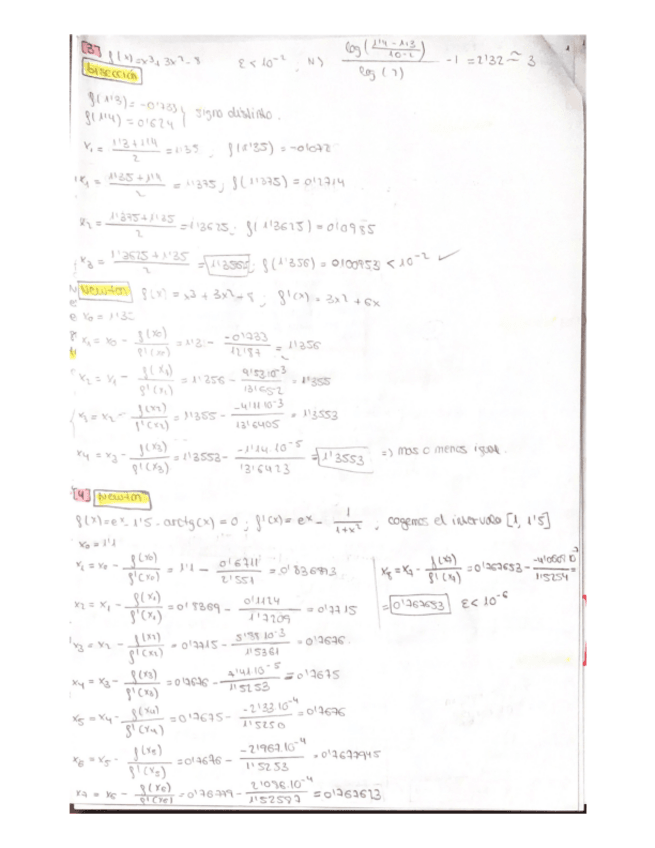 [3] f(x)=x³+3x²-8 ε<10⁻² N) log((1'4-1'3)/10⁻²)/log(2) -1 = 2'32 ≈ 3
BISECCIÓN
f(1'3)=-0'733
f(1'4)=0'624 } signo distinto.
x₁ = (1'3+1'4)/2 = 1'35, f(1'35)=-0'072
x₁ = (1'35+1'4)/2 = 1'375, f(1'375)=0'2714
x₂ = (1'375+1'35)/2 = 1'3625; f(1'3625)=0'0985
x₃ = (1'3625+1'35)/2 = 1'356; f(1'356)=0'00953 < 10⁻² ✓
Newton f(x)=x³+3x²-8; f'(x)=3x²+6x
x₀=1'3
x₁ = x₀ - f(x₀)/f'(x₀) = 1'3 - (-0'733)/12'87 = 1'356
x₂ = x₁ - f(x₁)/f'(x₁) = 1'356 - 9'53·10⁻³/13'652 = 1'355
x₃ = x₂ - f(x₂)/f'(x₂) = 1'355 - (-4'11·10⁻³)/13'6405 = 1'3553
x₄ = x₃ - f(x₃)/f'(x₃) = 1'3553 - (-1'14·10⁻⁵)/13'6423 = 1'3553 => mas o menos igual.
[4] Newton
f(x)=eˣ-1'5-arctg(x)=0; f'(x)=eˣ - 1/(1+x²), cogemos el intervalo [1, 1'5]
x₀=1'1
x₁ = x₀ - f(x₀)/f'(x₀) = 1'1 - 0'6711/2'551 = 0'836893
x₂ = x₁ - f(x₁)/f'(x₁) = 0'8369 - 0'1124/1'7209 = 0'7715
x₃ = x₂ - f(x₂)/f'(x₂) = 0'7715 - 5'95·10⁻³/1'5361 = 0'7676
x₄ = x₃ - f(x₃)/f'(x₃) = 0'7676 - 10⁻⁵/1'5253 = 0'7675
x₅ = x₄ - f(x₄)/f'(x₄) = 0'7675 - (-2'33·10⁻⁴)/1'5250 = 0'7676
x₆ = x₅ - f(x₅)/f'(x₅) = 0'7676 - (-2'967·10⁻⁴)/1'5253 = 0'7677945
x₇ = x₆ - f(x₆)/f'(x₆) = 0'76779 - 2'096·10⁻⁴/1'52587 = 0'767653
x₈ = x₇ - f(x₇)/f'(x₇) = 0'767653 - /1'5254 =
= 0'767653 ε<10⁻⁶